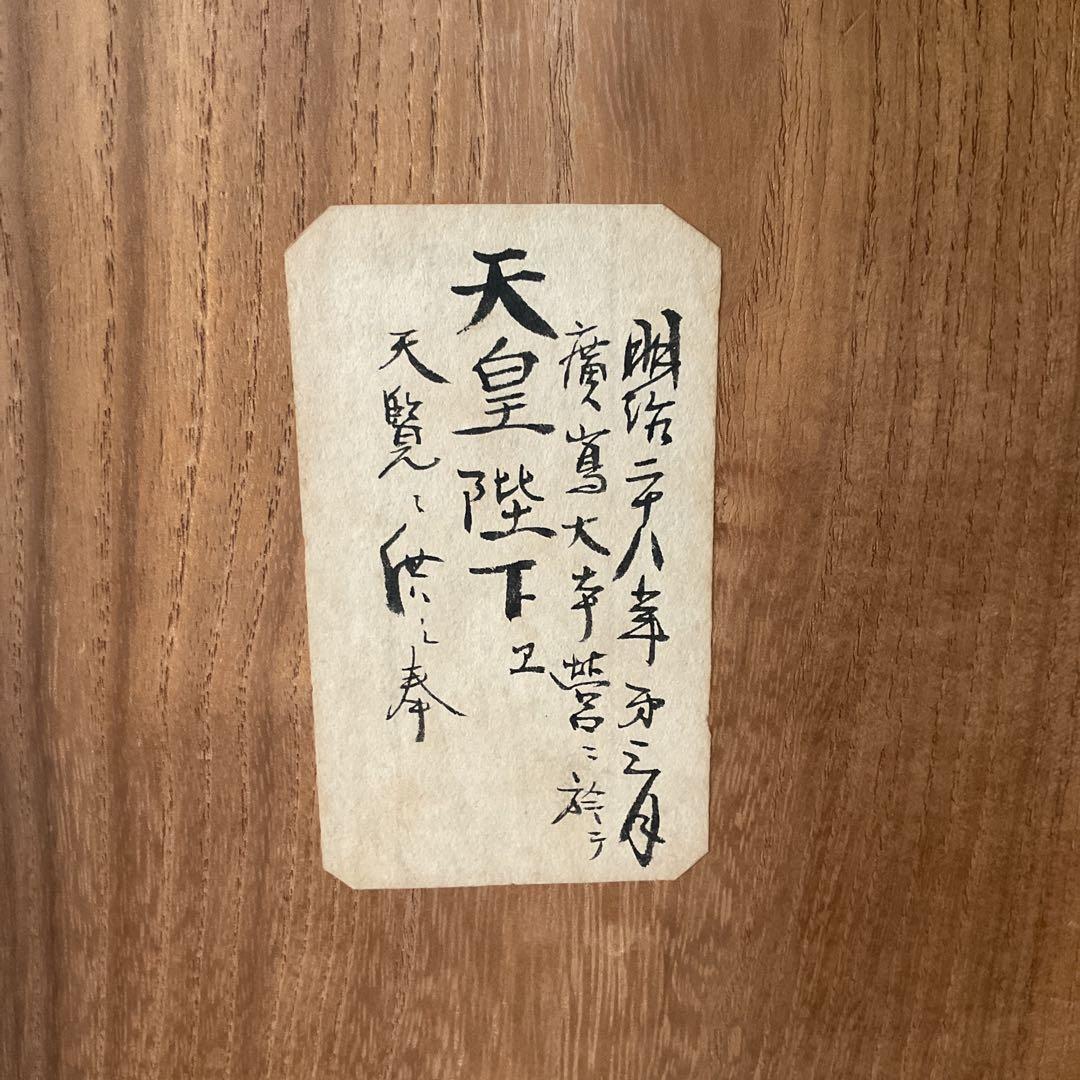 明治二十八年第三月
廣嶌大本營ニ於テ
天皇陛下エ
天覧ニ供シ奉